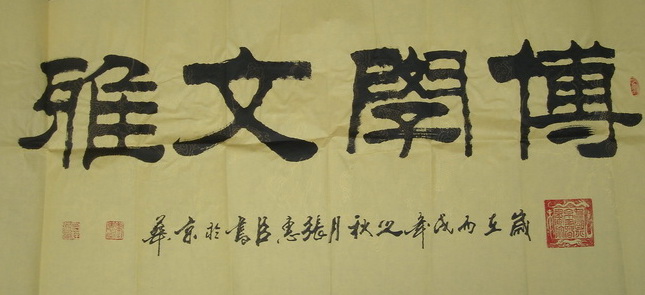 博學文雅
歲在丙戌年之秋月張惠臣書於京華